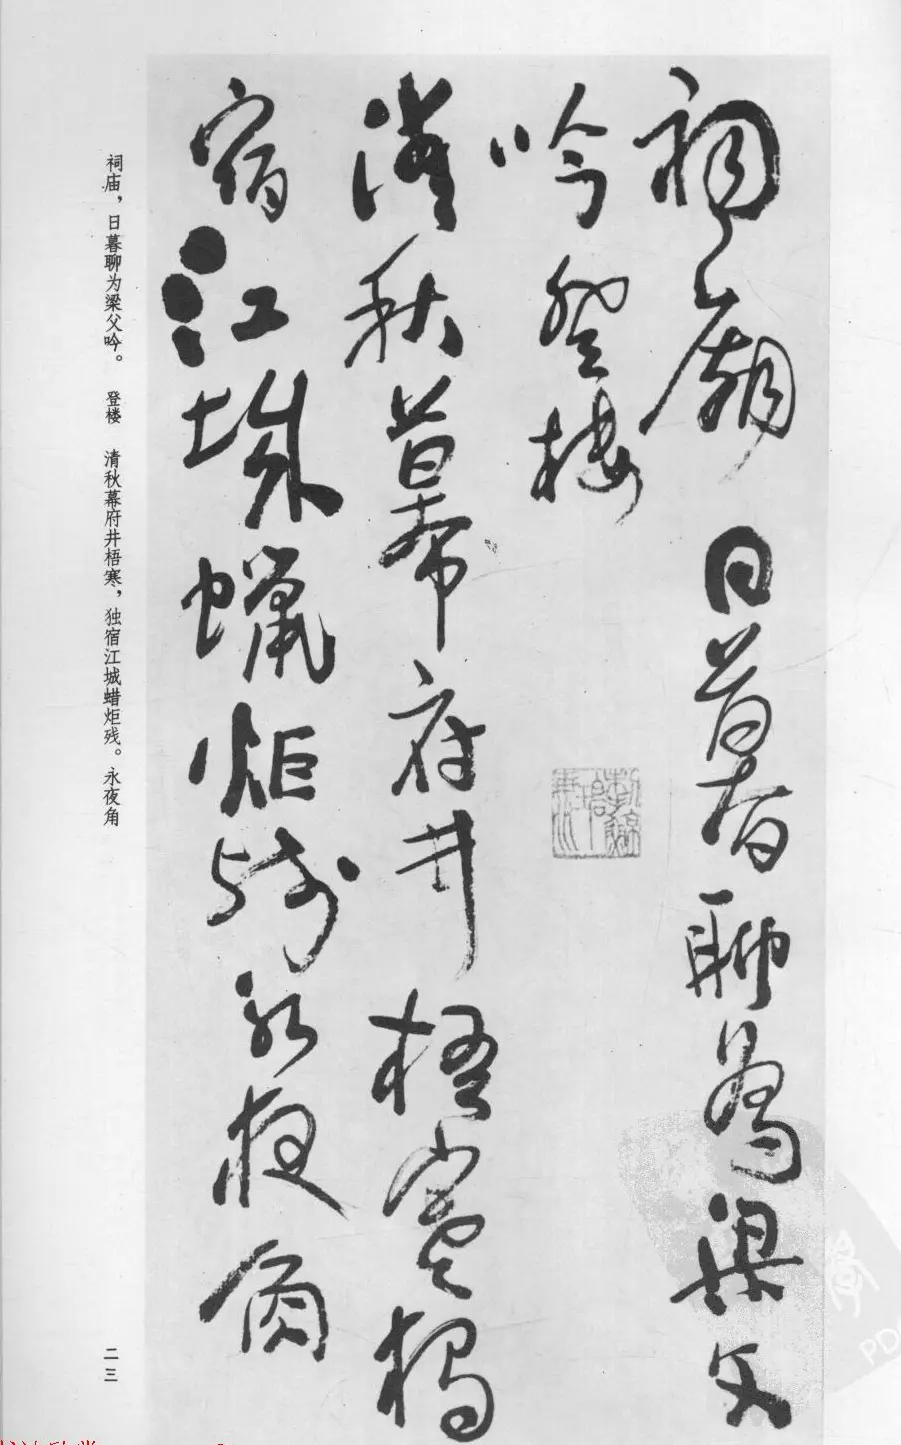 祠廟日暮聊為梁父
吟登樓
清秋幕府井梧寒獨
宿江城蠟炬殘永夜角
祠庙，日暮聊为梁父吟。 登楼 清秋幕府井梧寒，独宿江城蜡炬残。永夜角
二三
PD